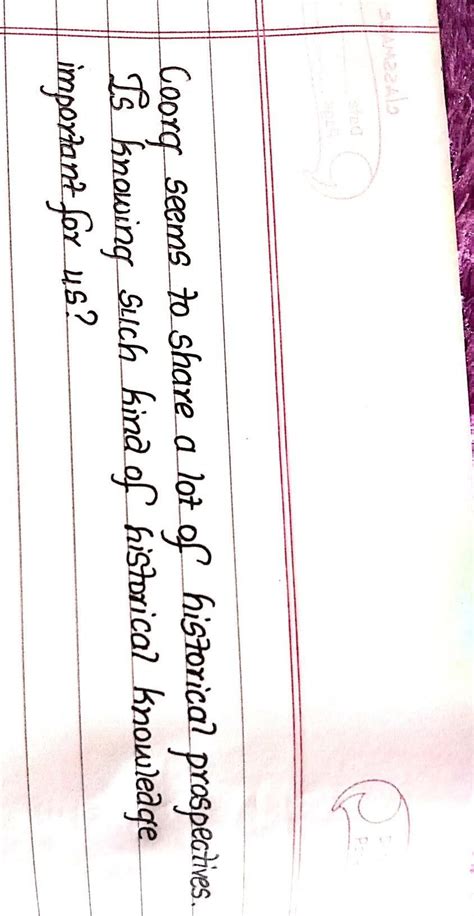 Coorg seems to share a lot of historical prospectives.
Is knowing such kind of historical knowledge
important for us?